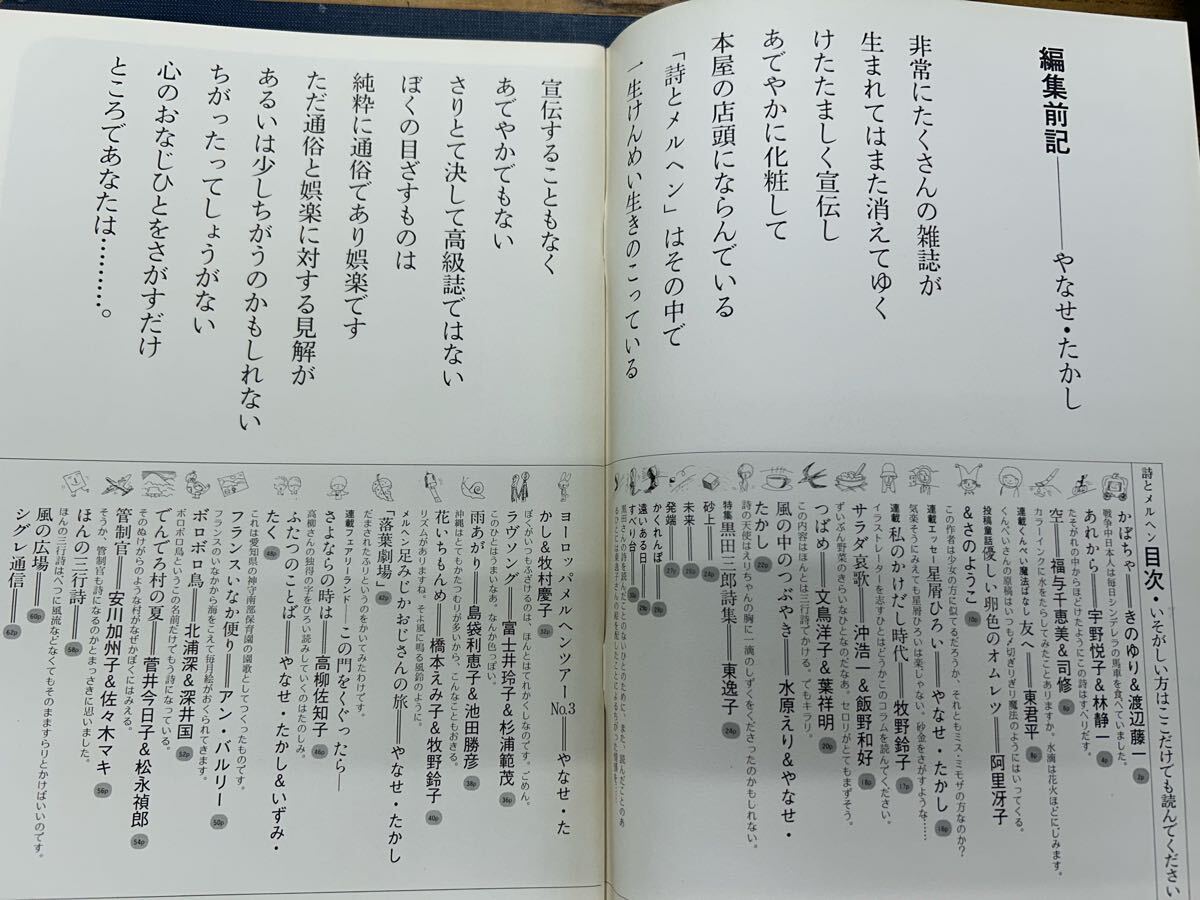 編集前記――――やなせ・たかし
非常にたくさんの雑誌が
生まれてはまた消えてゆく
けたたましく宣伝し
あでやかに化粧して
本屋の店頭にならんでいる
「詩とメルヘン」はその中で
一生けんめい生きのこっている
宣伝することもなく
あでやかでもない
さりとて決して高級誌ではない
ぼくの目ざすものは
純粋に通俗であり娯楽です
ただ通俗と娯楽に対する見解が
あるいは少しちがうのかもしれない
ちがったってしょうがない
心のおなじひとをさがすだけ
ところであなたは…………。
詩とメルヘン 目次・いそがしい方はここだけでも読んでください
かぼちゃ――きのゆり&渡辺藤一 2p
戦争中日本人は毎日シンデレラの馬車を食べていました。
あれから――宇野悦子&林静一 4p
たそがれの中からほどけたようにこの詩はすべりだす。
空――福与千恵美&司修 6p
カラーインクに水をたらしてみたことありますか。水滴は花火ほどににじみます。
連載くんぺい魔法ばなし 友へ――東君平 8p
くんぺいさんの原稿はいつも〆切ぎりぎり魔法のようにはいってくる。
投稿童話 優しい卵色のオムレツ――阿里冴子
&さのようこ 10p
この作者は少女の方に似てるだろうか、それともミス・ミモザの方なのか?
連載エッセー 星屑ひろい――やなせ・たかし 16p
気楽そうにみえても星屑ひろいは楽じゃない。砂金をさがすような……
連載 私のかけだし時代――牧野鈴子 17p
イラストレーターを志すひとはどうかこのコラムを読んでください。
サラダ哀歌――沖浩一&飯野和好 18p
ずいぶん野菜のきらいなひとなのだなあ。セロリがとてもまずそう。
つばめ――文鳥洋子&葉祥明 20p
この内容はほんとは三行詩でかける。でもキラリ。
風の中のつぶやき――水原えり&やなせ・
たかし 22p
詩の天使はえりちゃんの胸に一滴のしずくをくださったのかもしれない。
特集 黒田三郎詩集――東逸子 24p
砂上 24p
未来
発端
かくれんぼ
遠いある日
すべり台有り
ヨーロッパメルヘンツアーNo.3――やなせ・た
かし&牧村慶子 32p
ぼくがいつもふざけるのは、ほんとはてれかくしなのです。ごめん。
ラヴソング――富士井玲子&杉浦範茂 36p
このひとはうまいなあ。なんか色っぽい。
雨あがり――島袋利恵子&池田勝彦 38p
沖縄はとてもかたつむりが多いから、こんなこともおきる。
花いちもんめ――橋本えみ子&牧野鈴子 40p
リズムがありますね。そよ風に鳴る風鈴のように。
メルヘン足みじかおじさんの旅――やなせ・たかし
「落葉劇場」 42p
だまされたふりというのをかいてみたわけです。
連載フェアリーランド――この門をくぐったら――
さよならの時は――高柳佐知子 46p
高柳さんの独得の字をひろい読みしていくのはたのしみ。
ふたつのことば――やなせ・たかし&いずみ・
たく 48p
これは愛知県の神守南部保育園の園歌としてつくったものです。
フランスいなか便り――アン・バルリー 50p
フランスのいなかから海をこえて毎月絵がおくられてきます。
ボロボロ鳥――北浦深&深井国 52p
ボロボロ鳥というこの名前だけでもう詩になっている。
でんでろ村の夏――菅井今日子&松永禎郎 54p
そのぬけがらのような村がなぜかぼくにはみえる。
管制官――安川加州子&佐々木マキ 56p
そうか、管制官も詩になるのかとまっさきに思いました。
ほんの三行詩――― 58p
ほんの三行詩はべつに風流などなくてもそのまますらりとかけばいいのです。
風の広場――― 60p
シグレ通信――― 62p